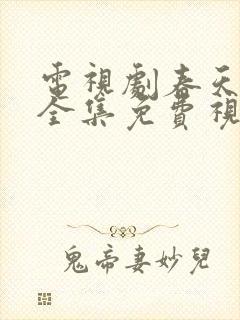 電視劇春天
全集免費視
鬼帝妻妙兒